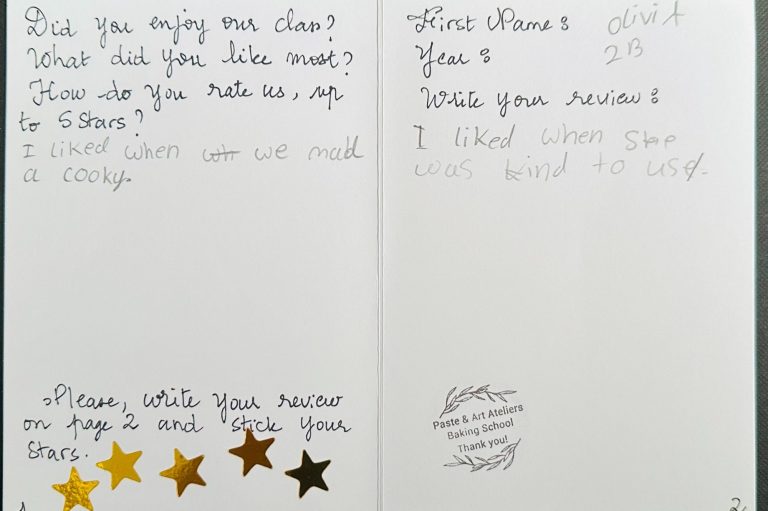 Did you enjoy our class?
What did you like most?
How do you rate us, up
to 5 Stars?
I liked when we mad
a cooky.
Please, write your review
on page 2 and stick your
Stars.
First Name:
OliviA
Year:
2B
Write your review:
I liked when she
was kind to us.
Paste & Art Ateliers
Baking School
Thank you!
2